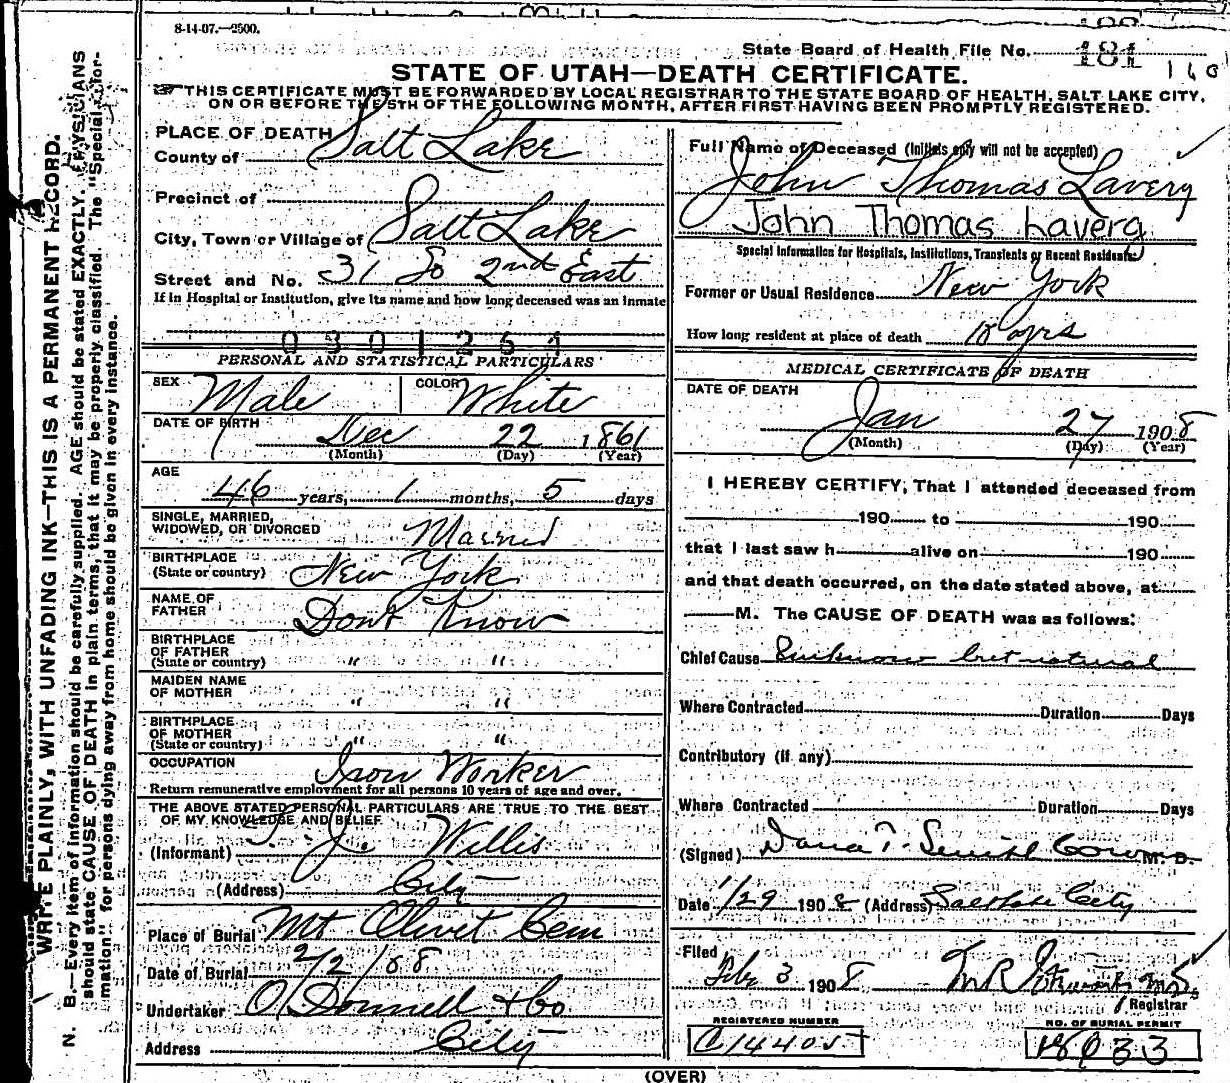 8-14-07.—2500.
State Board of Health File No. 181
160
STATE OF UTAH—DEATH CERTIFICATE.
THIS CERTIFICATE MUST BE FORWARDED BY LOCAL REGISTRAR TO THE STATE BOARD OF HEALTH, SALT LAKE CITY,
ON OR BEFORE THE 5TH OF THE FOLLOWING MONTH, AFTER FIRST HAVING BEEN PROMPTLY REGISTERED.
WRITE PLAINLY, WITH UNFADING INK—THIS IS A PERMANENT RECORD.
N. B.—Every item of information should be carefully supplied. AGE should be stated EXACTLY. PHYSICIANS
should state CAUSE OF DEATH in plain terms, that it may be properly classified. The "Special Infor-
mation" for persons dying away from home should be given in every instance.
PLACE OF DEATH
County of Salt Lake
Precinct of
City, Town or Village of Salt Lake
Street and No. 31 So 2nd East
If in Hospital or Institution, give its name and how long deceased was an inmate
0801261
PERSONAL AND STATISTICAL PARTICULARS
SEX Male COLOR White
DATE OF BIRTH Dec 22 1861
(Month) (Day) (Year)
AGE
46 years, 1 months, 5 days
SINGLE, MARRIED,
WIDOWED, OR DIVORCED Married
BIRTHPLACE
(State or country) New York
NAME OF
FATHER Dont Know
BIRTHPLACE
OF FATHER
(State or country) " "
MAIDEN NAME
OF MOTHER " "
BIRTHPLACE
OF MOTHER
(State or country) " "
OCCUPATION Iron Worker
Return remunerative employment for all persons 10 years of age and over.
THE ABOVE STATED PERSONAL PARTICULARS ARE TRUE TO THE BEST
OF MY KNOWLEDGE AND BELIEF.
(Informant) T. J. Willis
(Address) City
Place of Burial Mt Olivet Cem
Date of Burial 2/2/08
Undertaker O'Donnell & Co
Address City
Full Name of Deceased (Initials only will not be accepted)
John Thomas Lavery
John Thomas Laverg
Special Information for Hospitals, Institutions, Transients or Recent Residents.
Former or Usual Residence New York
How long resident at place of death 18 yrs
MEDICAL CERTIFICATE OF DEATH
DATE OF DEATH
Jan 27 1908
(Month) (Day) (Year)
I HEREBY CERTIFY, That I attended deceased from
190 to 190
that I last saw h alive on 190
and that death occurred, on the date stated above, at
M. The CAUSE OF DEATH was as follows:
Chief Cause Unknown but natural
Where Contracted Duration Days
Contributory (if any)
Where Contracted Duration Days
(Signed) Dana T. Smith M. D.
Date 1/29 1908 (Address) Salt Lake City
Filed
Feby 3 1908
Registrar
REGISTERED NUMBER
C14405
NO. OF BURIAL PERMIT
18033
(OVER)